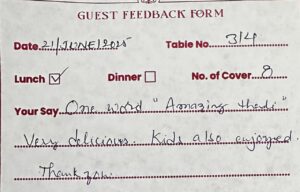 GUEST FEEDBACK FORM
Date 21/JUNE/2025 Table No. 314
Lunch ☑ Dinner ☐ No. of Cover. 8
Your Say One word "Amazing thali"
Very delicious. Kids also enjoyed.
Thank you.